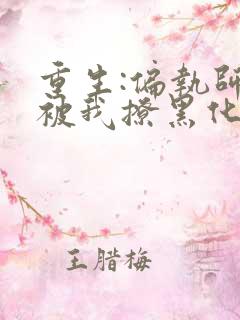 重生:偏執師
被我撩黑化
王腊梅